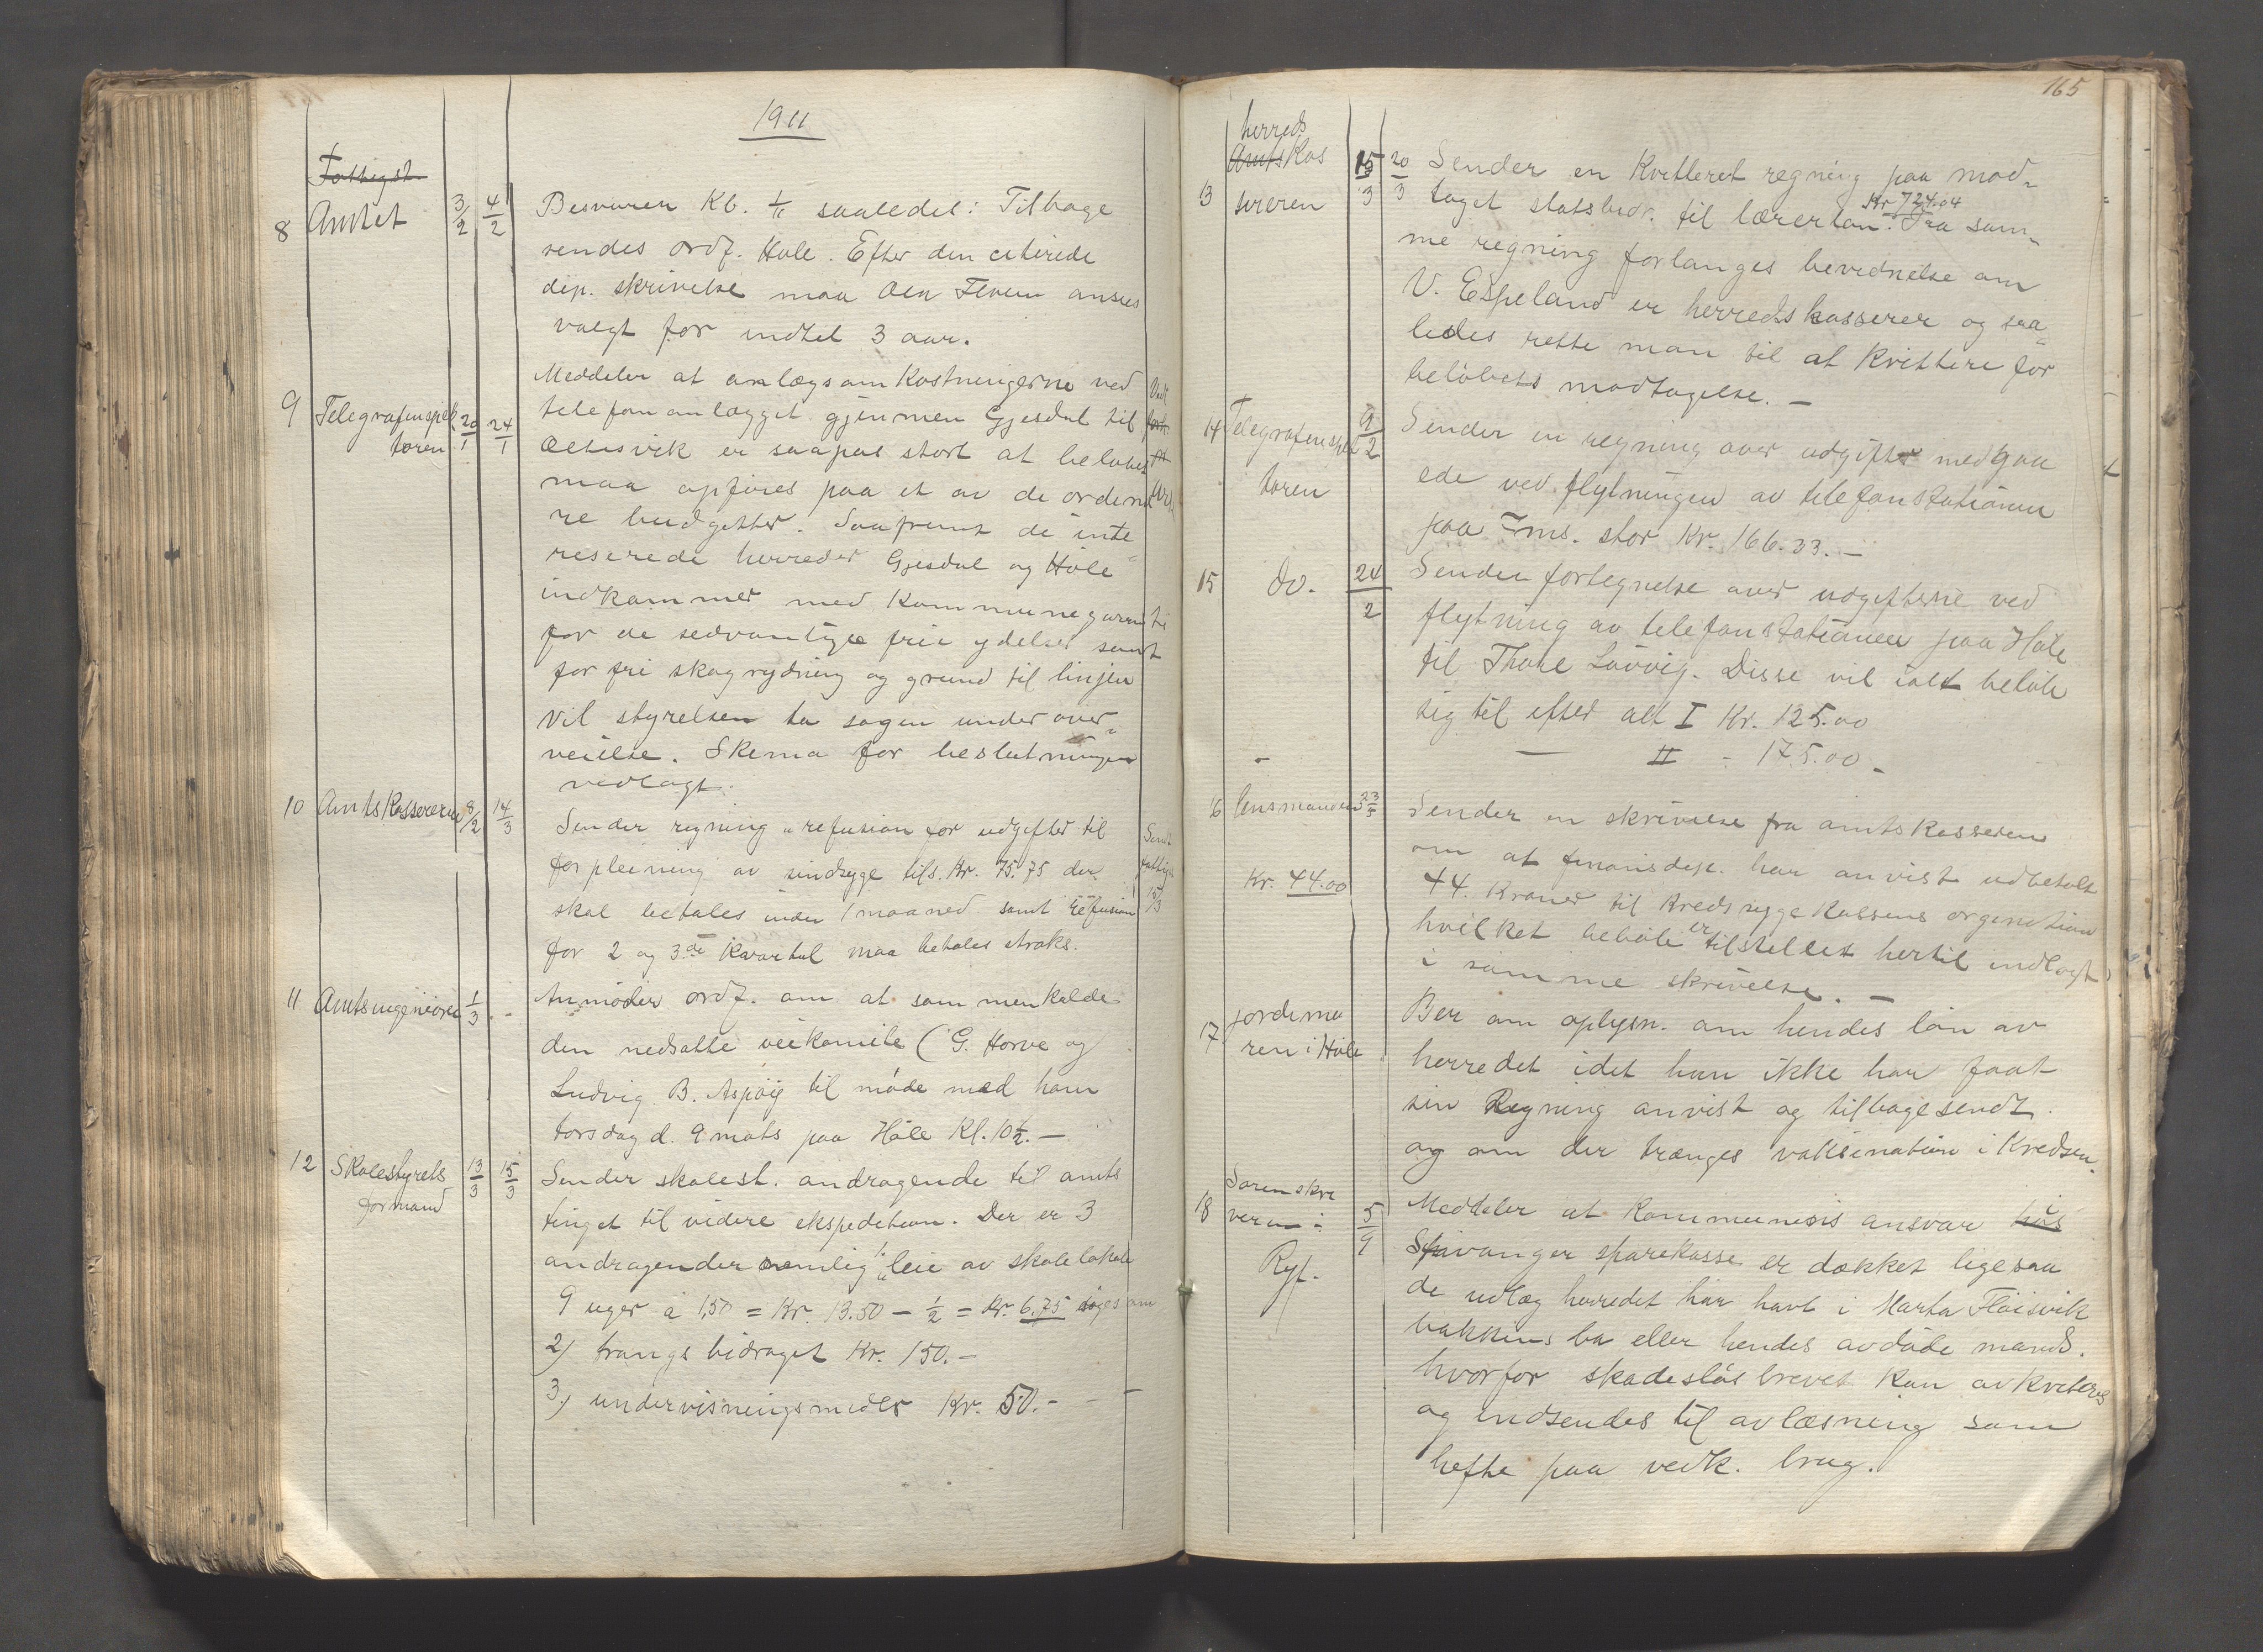 1911
Amtet
8 3/2 4/2 Besvarer Kb. 1/11 saaledes: Tilbage
sendes ordf. Høle. Efter den citerede
dep. skrivelse maa Ola Flæm ansees
valgt for indtil 3 aar.
Meddeler at anlægsomkostningerne ved
9 Telegrafinspek 20/1 24/1 telefonanlægget gjennem Gjesdal til
toren Oltesvik er saapas stort at beløbet
maa opføres paa et av de ordene
re budgetter. Saafremt de inte
reserede herreder Gjesdal og Høle
indkommer med Kommunegaranti
for de sedvanlige frie ydelser samt
for fri skogrydning og grund til linjen
vil styrelsen ta sagen under over
veielse. Skema for beslutningen
vedlagt.
10 Amtskassereren 8/2 14/3 Sender regning u refusion for udgifter til
forpleining av sindsyge tils. Kr. 75.75 der
skal betales inden 1 maaned samt refusion 15/3
for 2 og 3de Kvartal maa betales straks.
11 Amtsingeniøren 1/3 - Anmoder ordf. om at sammenkalde
den nedsatte veikomite (G. Horve og
Ludvig B. Aspøig til møde med ham
torsdag d. 9 mats paa Høle Kl. 10 1/2. —
12 Skolestyrets 13/3 15/3 Sender skolest. andragende til amts
formand tinget til videre ekspedition. Der er 3
andragender nemlig 1. leie av skolelokale
9 uger à 1,50 = Kr. 13.50 - 1/2 = Kr. 6.75 søges om
2) trangs bidraget Kr. 150.-
3) undervisningsmidler Kr. 50.-
165
herreds
Amts Kas 15/3 20/3 Sender en Kvitteret regning paa mod-
13 sereren taget statsbidr. til lærerløn. Kr 724.04 Paa sam-
me regning forlanges bevidnelse om
V. Espeland er herredskasserer og saa
ledes rette man til at Kvittere for
beløbets modtagelse. —
14 Telegrafinspek 9/2 Sender en regning over udgifter medgaa
toren ede ved flytningen av telefonstationen
paa Ims. stor Kr. 166.33. —
15 do. 24/2 Sender fortegnelse over udgifterne ved
flytning av telefonstationen paa Høle
til Thore Løvvig. Disse vil ialt beløbe
sig til efter alt I Kr. 125.00
— II - 175.00 -
16 lensmanden 23/3 Sender en skrivelse fra amtskassereren
om at finansdep. har anvist udbetalt
Kr. 44.00 44. Kroner til Kredssygekassens organition
hvilket beløb er tilstillet hertil indlagt
i samme skrivelse. —
17 jordemo Ber om oplysn. om hendes løn av
ren i Høle herredet idet hun ikke har faat
sin Regning anvist og tilbagesendt.
og om der trænges vaksination i Kredsen.
Sorenskri
18 veren i 5/9 Meddeler at Kommunens ansvar hos
Ryf. Stavanger sparekasse er dækket ligesaa
de udlæg herredet har havt i Marta Fløisvik
bakkens bo eller hendes avdøde mands.
hvorfor skadesløsbrevet Kan avkviteres
og indsendes til avlæsning som
hefte paa vedk. brug.